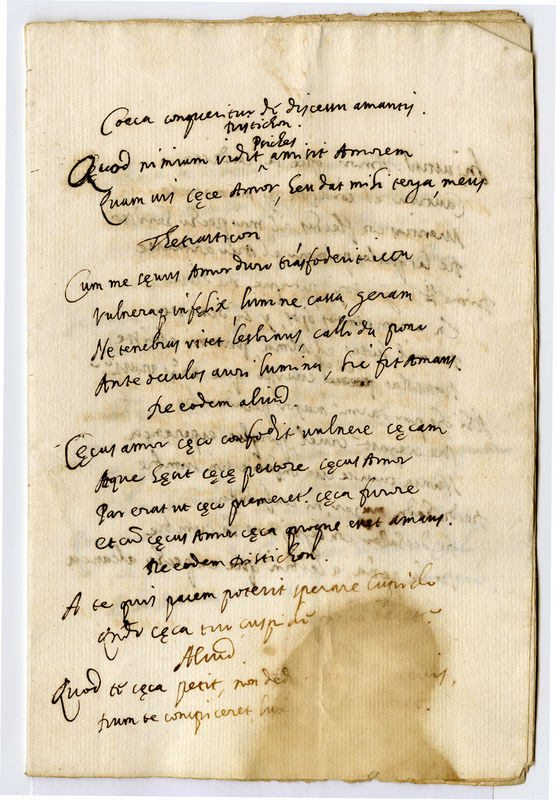 Coeca conqueritur de discessu amantis.
Distichon.
Quod nimium vidit Psiches amisit Amorem
Quam vis cęce Amor, seu dat mihi terga, meus
Thetrasticon
Cum me sęvus Amor duro trãsfoderit ictu
vulneraq infęlix lumine cassa geram
Ne tenebras vitet Lesbinus, callida pono
Ante oculos auri lumina, sic fit Amans.
De eodem aliud.
Cęcus amor cęco confodit vulnere cęcam
Atque cęcę pectore cęcus Amor
Par erat ut cęco premeret cęca furore
et cũ cęcus Amor cęca quoque esset amans.
De eodem Distichon.
A te quis pacem poterit sperare Cupido
cęca tuo
Aliud
Quod te cęca petit, non
dum te conspiceret